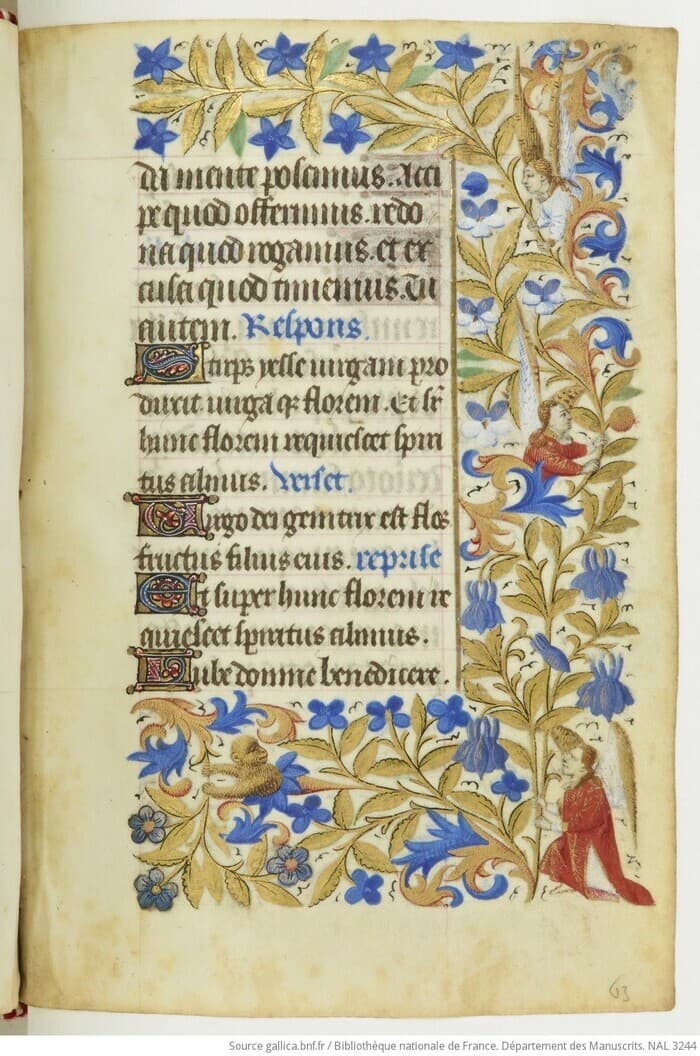 da mente poscimus. Acci
pe quod offerimus. redo
na quod rogamus. et ex
cusa quod timemus. Tu
autem. Respons.
Stirps yesse uirgam pro
duxit uirga q florem. Et sr
hunc florem requiescet spiri
tus almus. verset.
Uirgo dei genitrix est flos
fructus filius eius. reprise
Et super hunc florem re
quiescet spiritus almus.
Iube domne benedicere.
63
Source gallica.bnf.fr / Bibliothèque nationale de France. Département des Manuscrits. NAL 3244